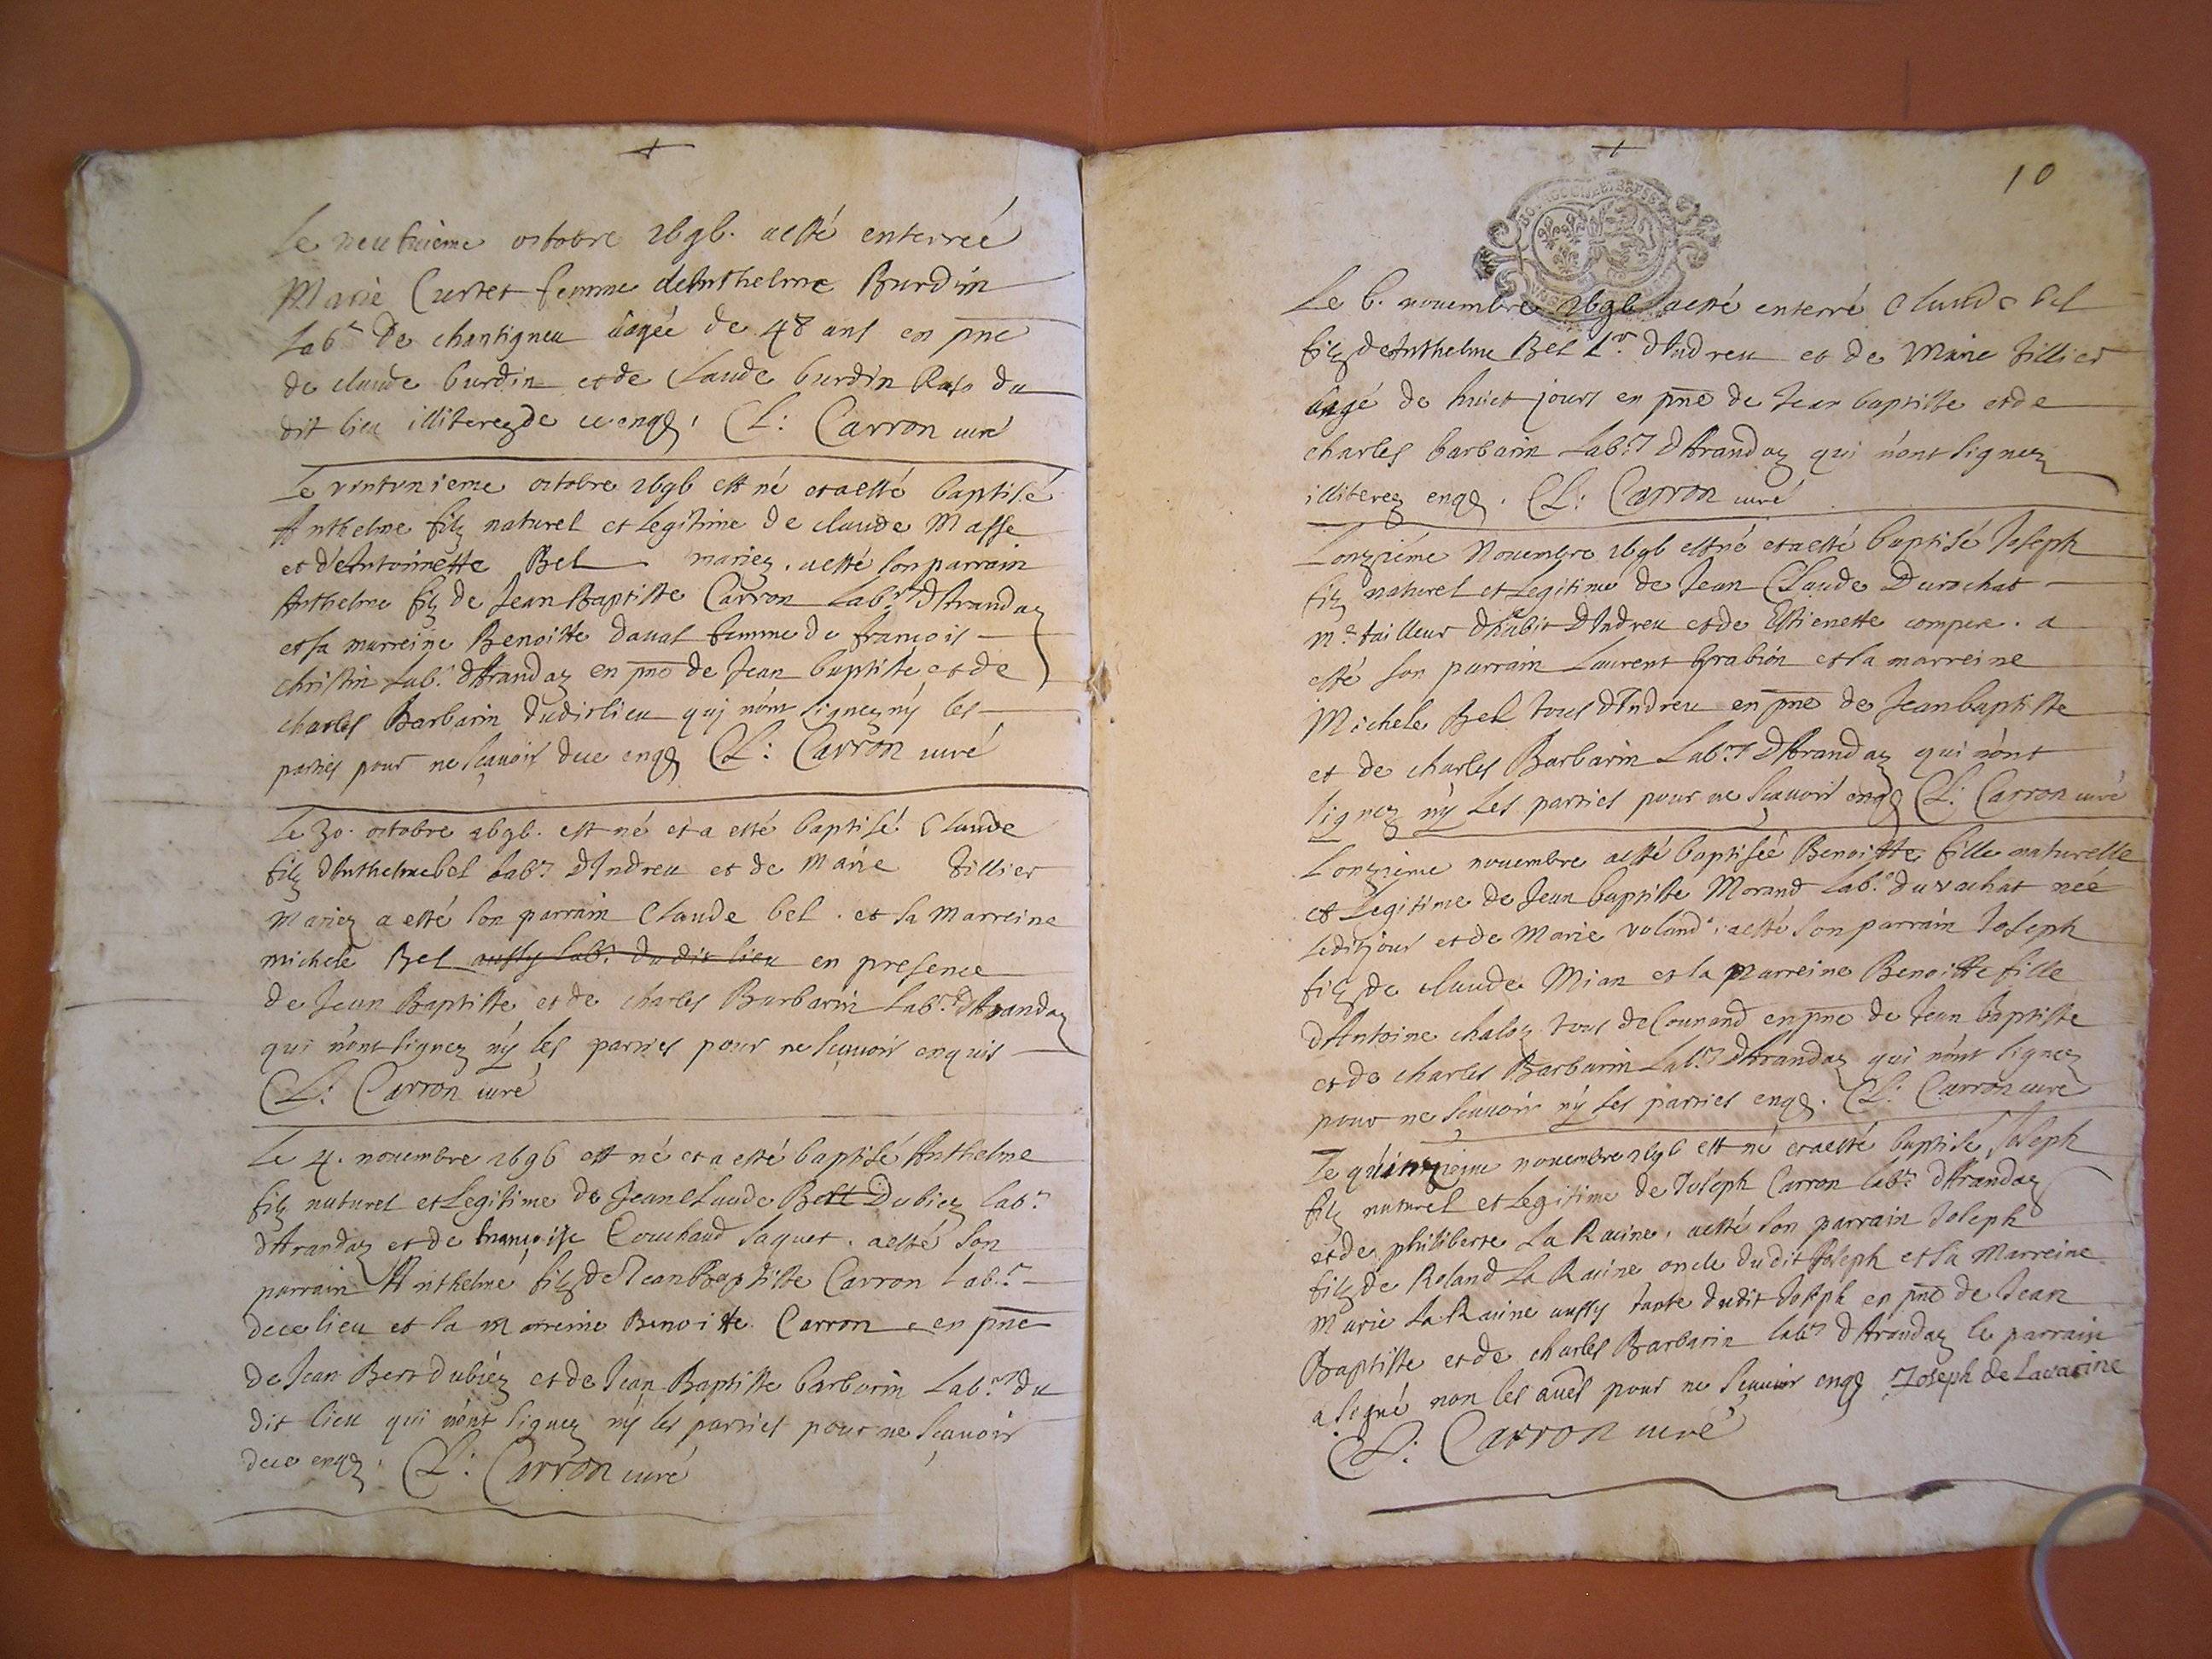 Le neufuieme octobre 1696. a esté enterreé
Marie Curtet femme de Anthelme Burdin
Labr. de chantigneu âagée de 48 ans en pnce
de claude burdin et de Claude burdin du
dit lieu illiterez de ce enqs. Cl: Carron curé
Le vintvnieme octobre 1696 est né et a esté baptisé
Anthelme filz naturel et Legitime de claude Masse
et de Antoinette Bel mariez. a esté son parrain
Anthelme filz de Jean Baptiste Carron Labr. d'Arandaz
et sa marreine Benoitte daval femme de françois
christin Labr. d'Arandaz en pnce de Jean baptiste et de
charles Barbarin dudit lieu qui n'ont signez ny les
parties pour ne sçavoir de ce enqs Cl: Carron curé
Le 30. octobre 1696. est né et a esté baptisé Claude
filz d'Anthelme bel Labr. d'Indreu et de Marie Tillier
Mariez a esté son parrain Claude bel. et sa Marreine
michele Bel aussy labr. du dit lieu en presence
de Jean Baptiste et de charles Barbarin Labrs. d'Arandaz
qui n'ont signez ny les parties pour ne sçavoir enquis
Cl: Carron curé
Le 4. novembre 1696 est né et a esté baptisé Anthelme
filz naturel et Legitime de Jean Claude Bert Dubiez labr.
d'Arandaz et de françoise Couchaud Jaquet. a esté son
parrain Anthelme filz de Jean Baptiste Carron labr.
de ce lieu et la marreine Benoitte Carron en pnce
de Jean Bert dubiez et de Jean Baptiste barbarin Labrs. du
dit lieu qui n'ont signez ny les parties pour ne sçavoir
de ce enqs. Cl: Carron curé
10
Le 6. novembre 1696 a esté enterré claude bel
filz de Anthelme Bel Lr. d'Indreu et de Marie Tillier
âagé de huict jours en pnce de Jean baptiste et de
charles barbarin Labrs d'Arandaz qui n'ont signez
illiterez enqs. Cl: Carron curé
L'onzieme Novembre 1696 est né et a esté baptisé Joseph
filz naturel et Legitime de Jean Claude Durochat
me. tailleur d'habit d'Indreu et de Estienette compere. a
esté son parrain Laurent Grabion et sa marreine
Michele Bel tous d'Indreu en pnce de Jean baptiste
et de charles Barbarin Labrs d'Arandaz qui n'ont
signez ny Les parties pour ne sçavoir enqs Cl: Carron curé
L'onzieme novembre a esté baptiseé Benoitte fille naturelle
et Legitime de Jean baptiste Morand Labr. du vachat née
ledit jour et de Marie voland. a esté son parrain Joseph
filz de claude Mian et la marreine Benoitte fille
d'Antoine chaloz tous de Counand en pnce de Jean baptiste
et de charles Barbarin Labrs d'Arandaz qui n'ont signez
pour ne sçavoir ny les parties enqs. Cl: Carron curé
Le quinzieme novembre 1696 est né et a esté baptisé Joseph
filz naturel et Legitime de Joseph Carron labr. d'Arandaz
et de philiberte La Racine. a esté son parrain Joseph
filz de Roland La Racine oncle dudit Joseph et sa Marreine
Marie La Racine aussy tante dudit Joseph en pnce de Jean
Baptiste et de charles Barbarin labrs d'Arandaz le parrain
a signé non les aues pour ne sçavoir enqs Joseph de Lavarine
Cl: Carron curé